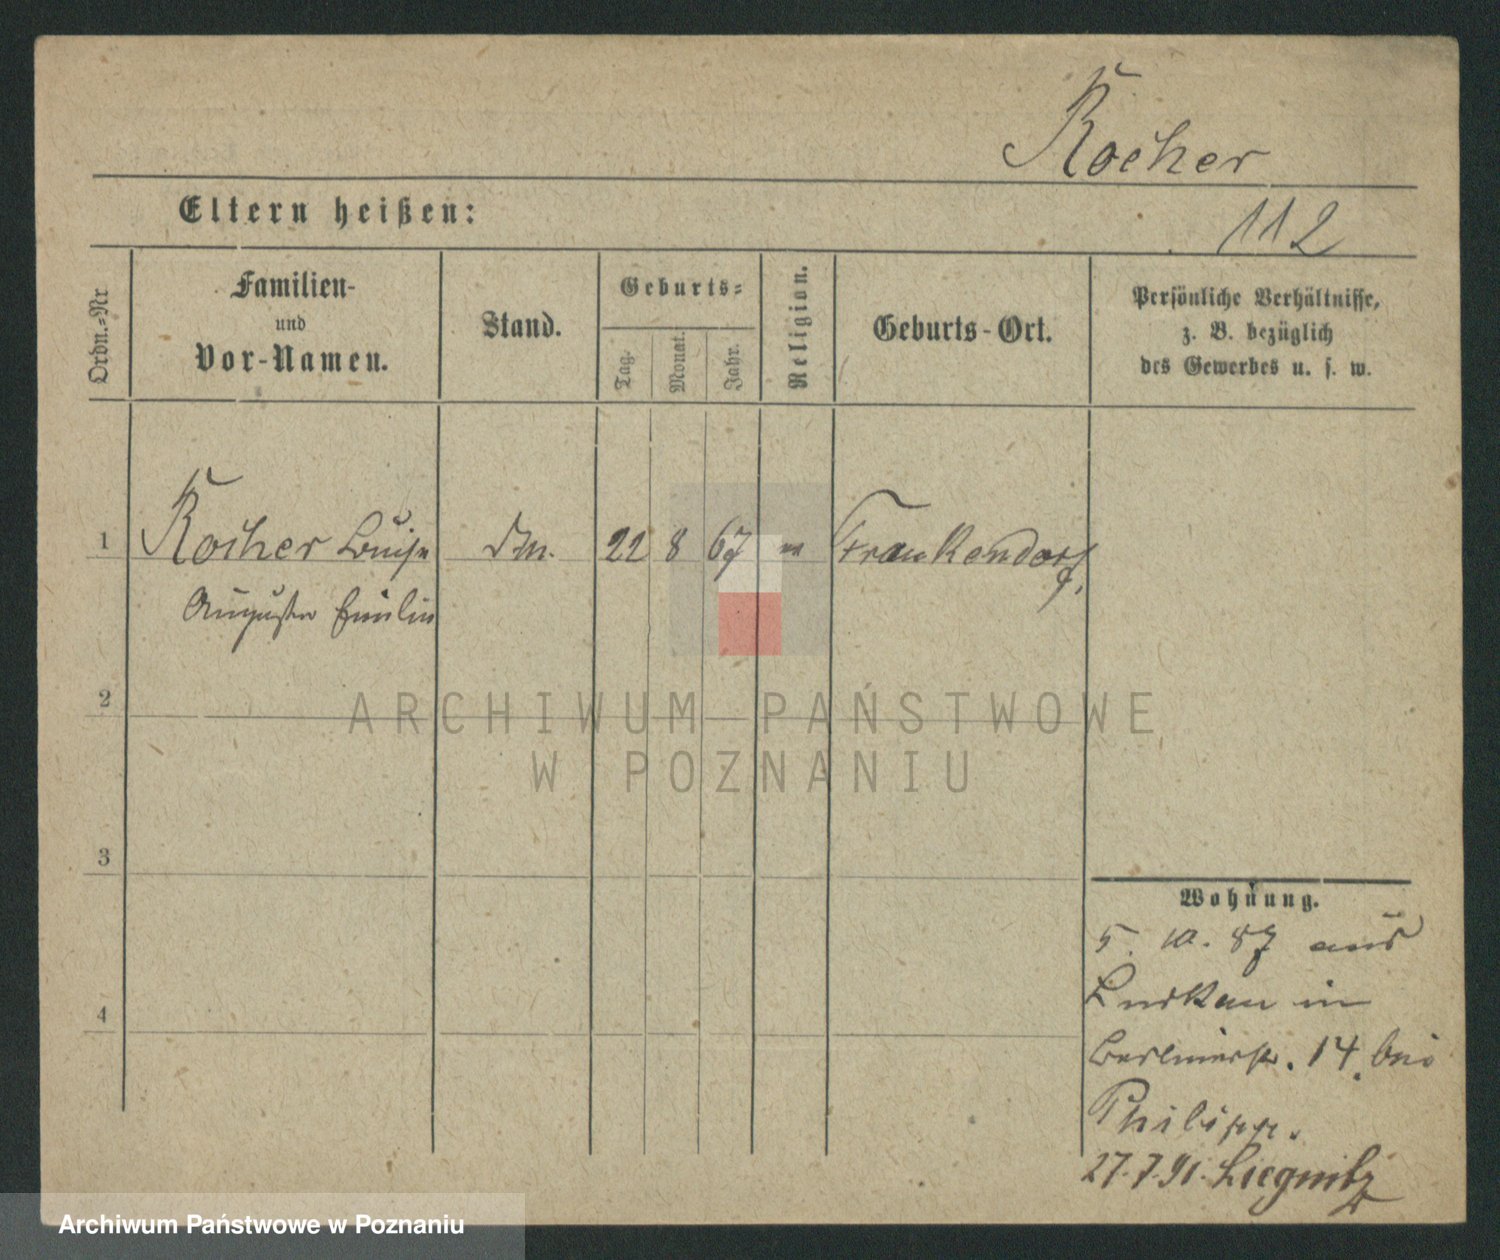 Rocher
Eltern heißen:
112
Ordn.-Nr
Familien-
und
Vor-Namen.
Stand.
Geburts-
Tag.
Monat.
Jahr.
Religion.
Geburts-Ort.
Persönliche Verhältnisse,
z. B. bezüglich
des Gewerbes u. s. w.
1 Rocher Luise 22 8 67 Frankendorf,
Auguste Emilie
2
ARCHIWUM PAŃSTWOWE
W POZNANIU
3
Wohnung.
5. 10. 87 aus
Luckau in
Berlinerstr. 14. bei
Philipp.
4
27.7.91. Liegnitz
Archiwum Państwowe w Poznaniu